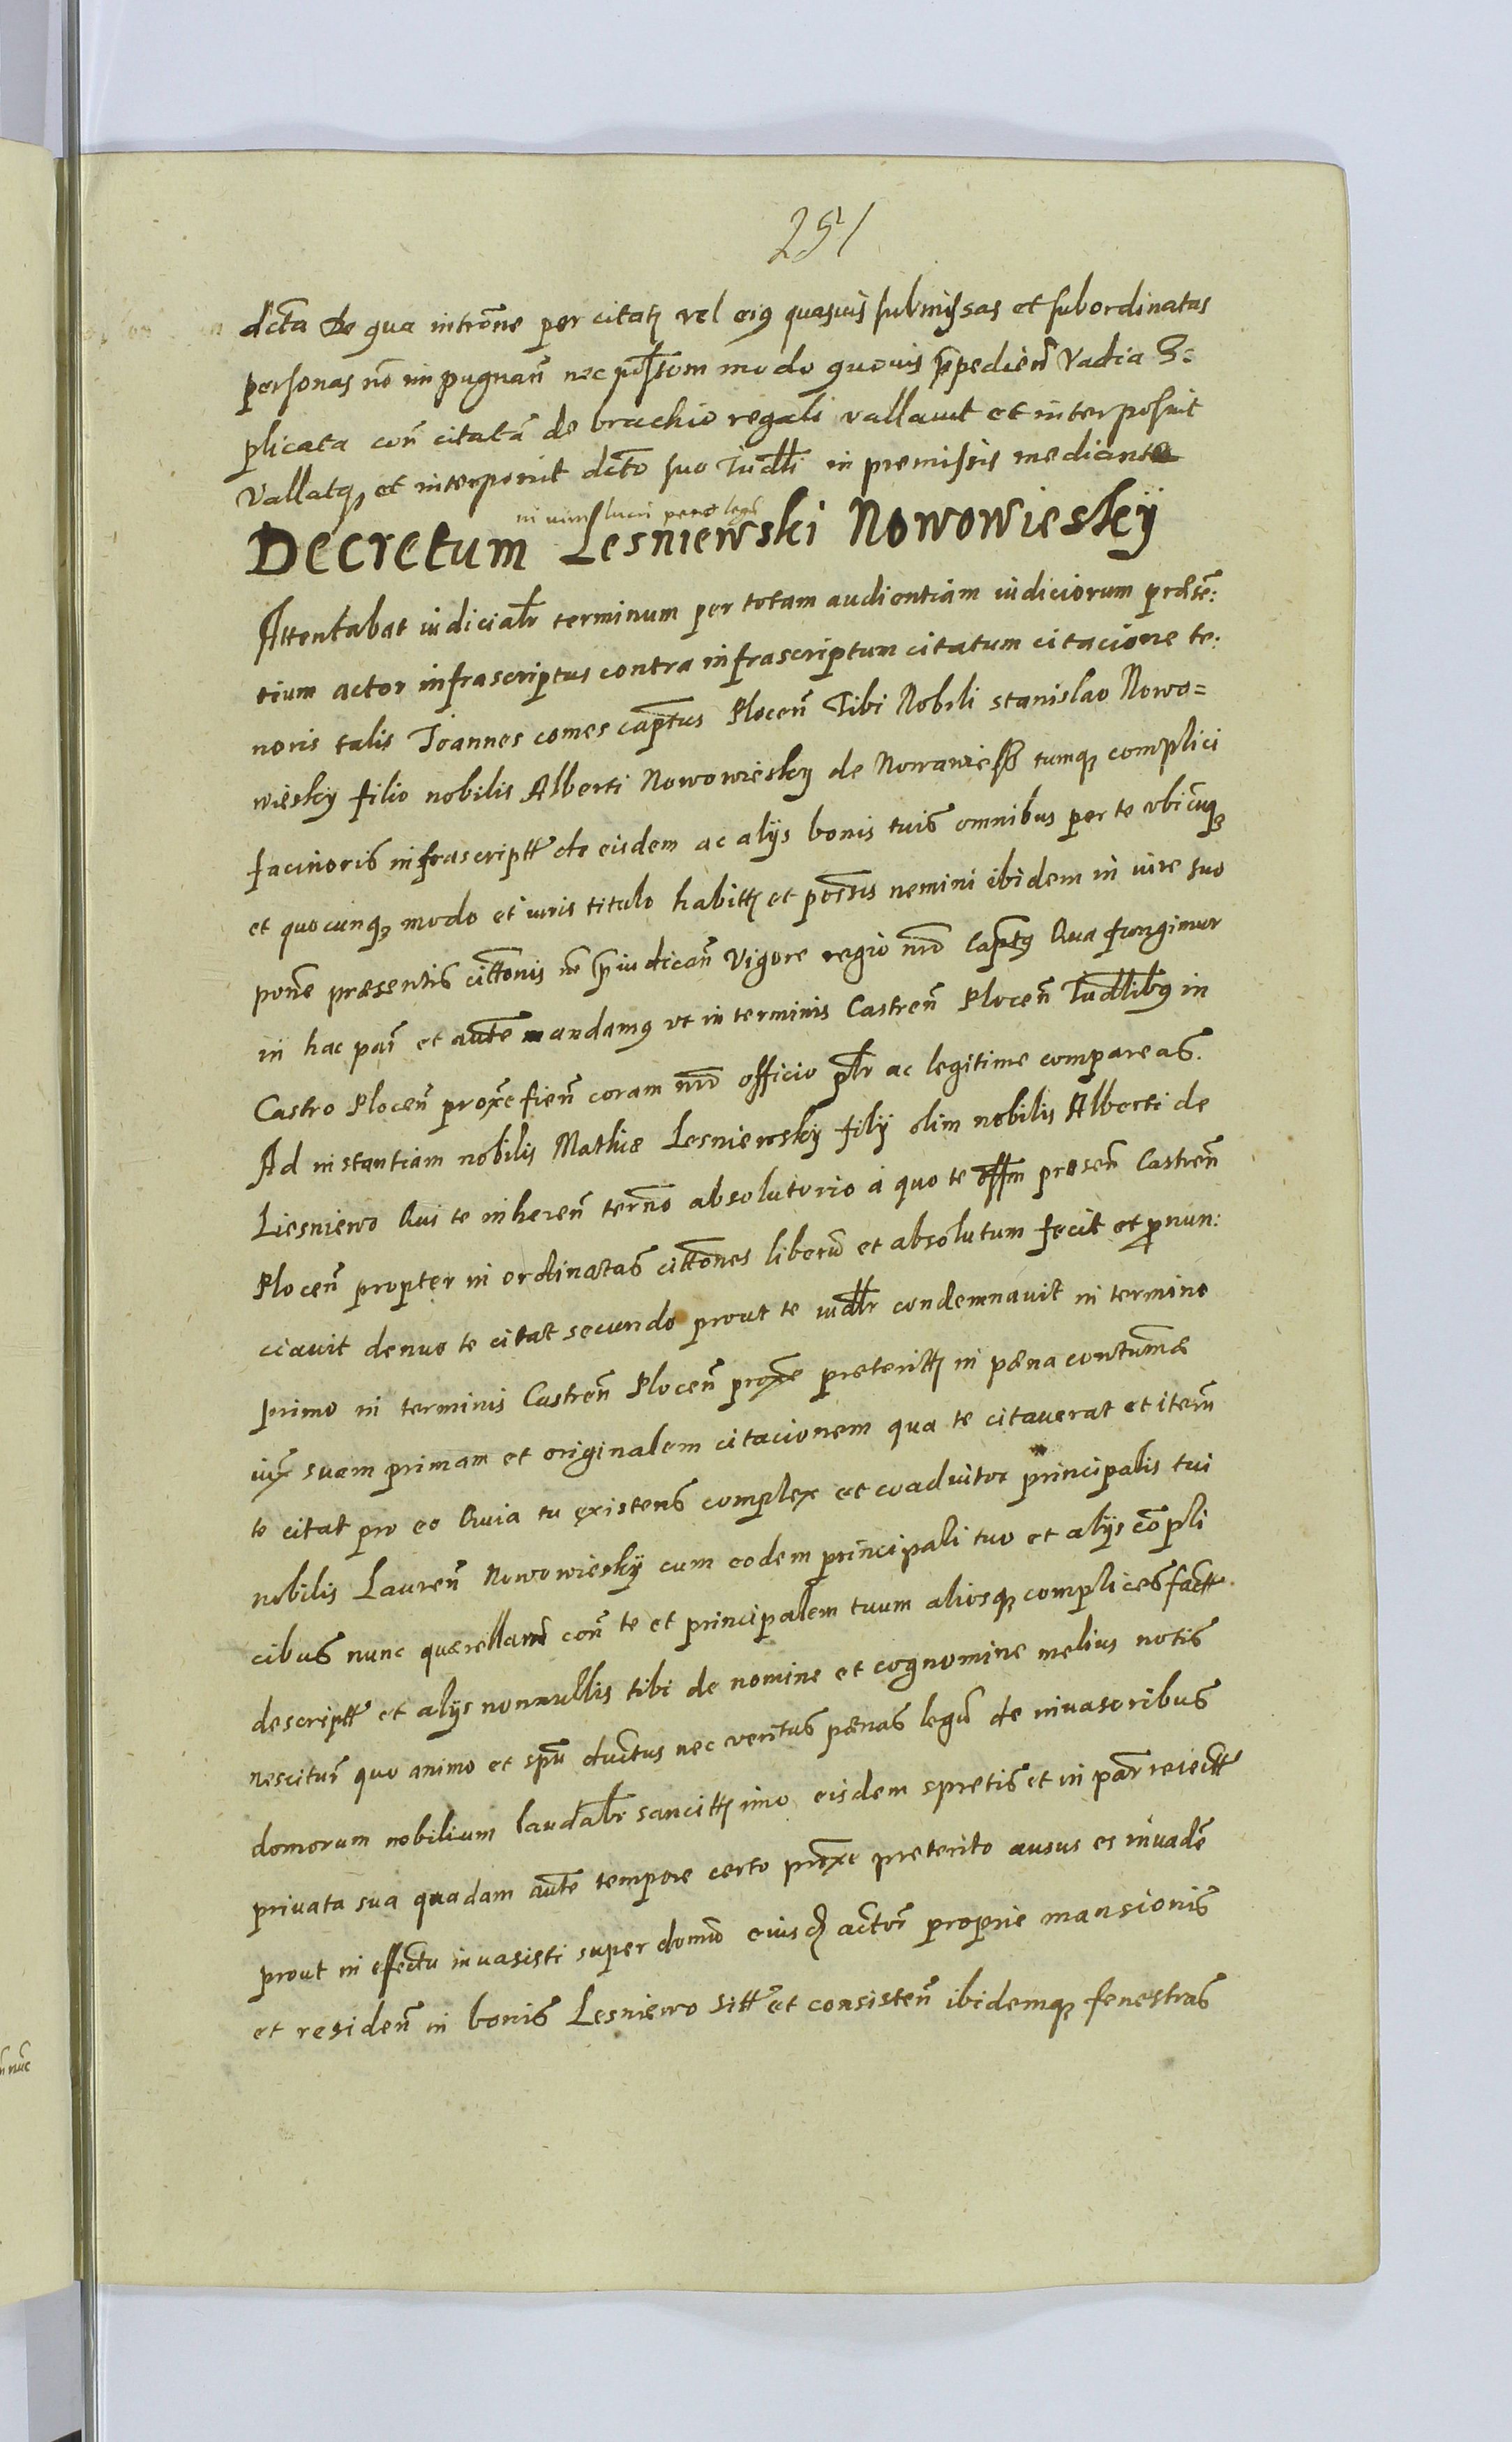 251
dicta de qua intromne per citatum vel eius quasuis submissas et subordinatas
personas non impugnan nec possessionem modo quouis prepedien Vadia 3:
plicata con citatum de brachio regali vallauit et interposuit
Vallatq et interponit dicto suo Iudli in premissis mediante
in vim lucri pene legis
Decretum Lesniewski Nowowieskÿ
Attentabat iudicialr terminum per totam audientiam iudiciorum præsen:
tium actor infrascriptus contra infrascriptum citatum citacione te:
noris talis Joannes comes captus Plocen Tibi Nobili stanislao Nowo=
wiesky filio nobilis Alberti Nowowiesky de Nowawiess tumq complici
facinoris infrascriptt de eisdem ac alijs bonis tuis omnibus per te vbicunq
et quocunq modo et iuris titulo habitt et possis nemini ibidem in iure suo
pone præsentis cittonis non preiudican Vigore regio nro Captus Qua fungimur
in hac pari et aute mandamus vt in terminis Castren Plocen Iudlibus in
Castro Plocen proxe fien coram nro officio plr ac legitime compareas.
Ad instantiam nobilis Mathiæ Lesniewsky filij olim nobilis Alberti de
Liesniewo Qui te inheren termo absolutorio a quo te offm presen Castren
Plocen propter in ordinatas cittones liberu et absolutum fecit et pronun:
ciauit denuo te citat secundo prout te iudlr condemnauit in termino
primo in terminis Castren Plocen proxe preteritt in pæna contumæ
iux suam primam et originalem citacionem qua te citauerat et iteru
te citat pro eo Quia tu existens complex et coadiutor principalis tui
nobilis Lauren Nowowieskÿ cum eodem principali tuo et alijs compli
cibus nunc quærellam con te et principalem tuum aliosq complices factt
descriptt et alijs nonnullis tibi de nomine et cognomine melius notis
nescitur quo animo et spu ductus nec veritus pænas legu de inuasoribus
domorum nobilium laudablr sancitt imo eisdem spretis et in par reiectt
priuata sua quadam aute tempore certo proxe preterito ausus es inuade
prout in effectu inuasisti super domu eiusd actor proprie mansionis
et residen in bonis Lesniewo sitt et consisten ibidemq fenestras